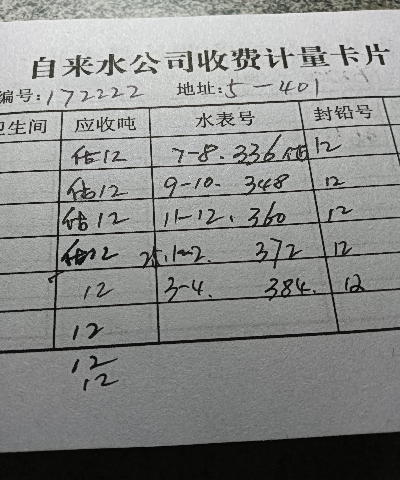 自来水公司收费计量卡片
编号:172222 地址:5-401
卫生间 应收吨 水表号 封铅号
估12 7-8. 336估 12
估12 9-10. 348 12
估12 11-12. 360 12
估12 25.1-2. 372 12
12 3-4. 384. 12
12
12
12